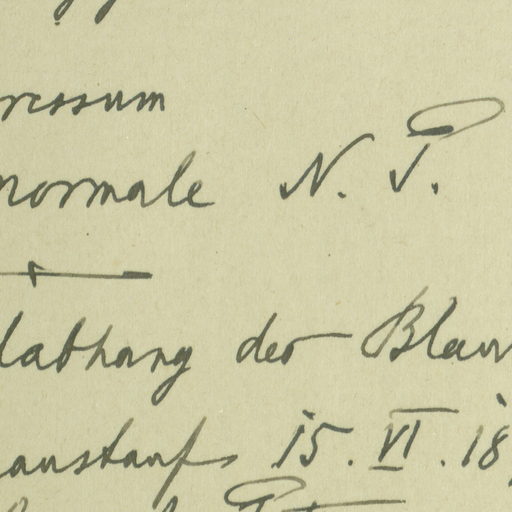 ressum
normale N. P.
labhang der Blau
austauf 15. VI. 18